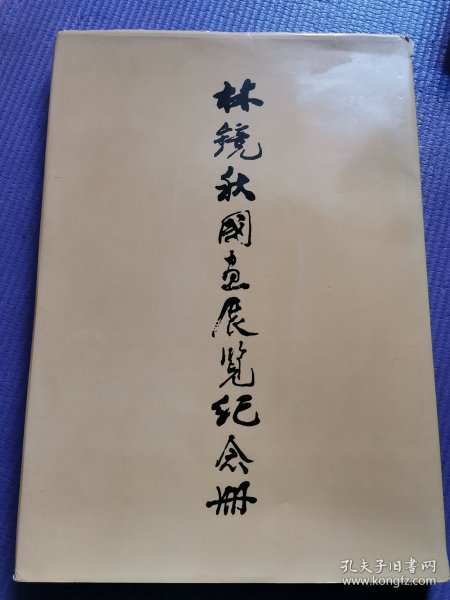 林镜秋國画展覧纪念册
孔夫子旧书网
www.kongfz.com